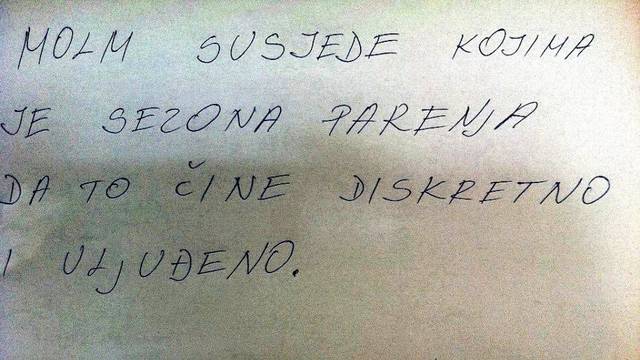 MOLM SUSJEDE KOJIMA
JE SEZONA PARENJA
DA TO ČINE DISKRETNO
I ULJUĐENO.